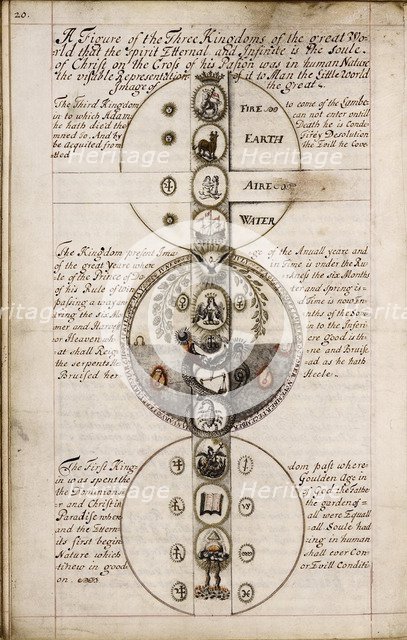 20.
A Figure of the Three Kingdoms of the great Wo-
rld that the Spirit Etternal and Infinite is the soule
of Christ on the Cross of his Pasion was in human Nature
the visible Representation of it to Man the Little World
Image of the Great
The Third Kingdom to come of the Lambe
in to which Adam can not enter untill
he hath died the Death he is Conde
mned to. And by Firey Desolution
be acquited from the Evill he Cove
FIRE
EARTH
AIRE
WATER
The Kingdom present Ima ge of the Anuall yeare and
of the great yeare where in Time is under the Ru
le of the Prince of Da rkness the six Months
of his Rule of Win ter and Spring is
pasing away an d Time is now
ring the six Mo nths of the So
mer and Harvest in to the Inferi
or Heaven wh ere God is th
at shall Reig ne and Bruise
the serpents He ad as he hath
Bruised her Heele.
The First King dom past where
in was spent the Goulden Age in
the Dominion of God the Fathe
r and Christ in the garden of
Paradise when all were Equall
and the Etern all Soule had
its first begin ing in human
Nature which shall ever Con
tinew in good or Evill Conditi
on
heritage-images.com
Heritage
Images